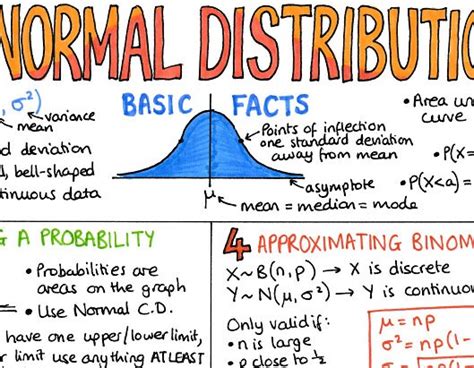 NORMAL DISTRIBUTIO
, σ²)
variance
mean
d deviation
, bell-shaped
tinuous data
BASIC FACTS
Points of inflection
one standard deviation
away from mean
asymptote
μ
mean = median = mode
• Area un
curve
• P(X=
• P(X<a) =
G A PROBABILITY
• Probabilities are
areas on the graph
• Use Normal C.D.
have one upper/lower limit,
r limit use anything AT LEAST
4 APPROXIMATING BINOM
X~B(n,p) → X is discrete
Y~N(μ, σ²) → Y is continuou
Only valid if:
• n is large
• p close to ½
μ = np
σ² = np(1-